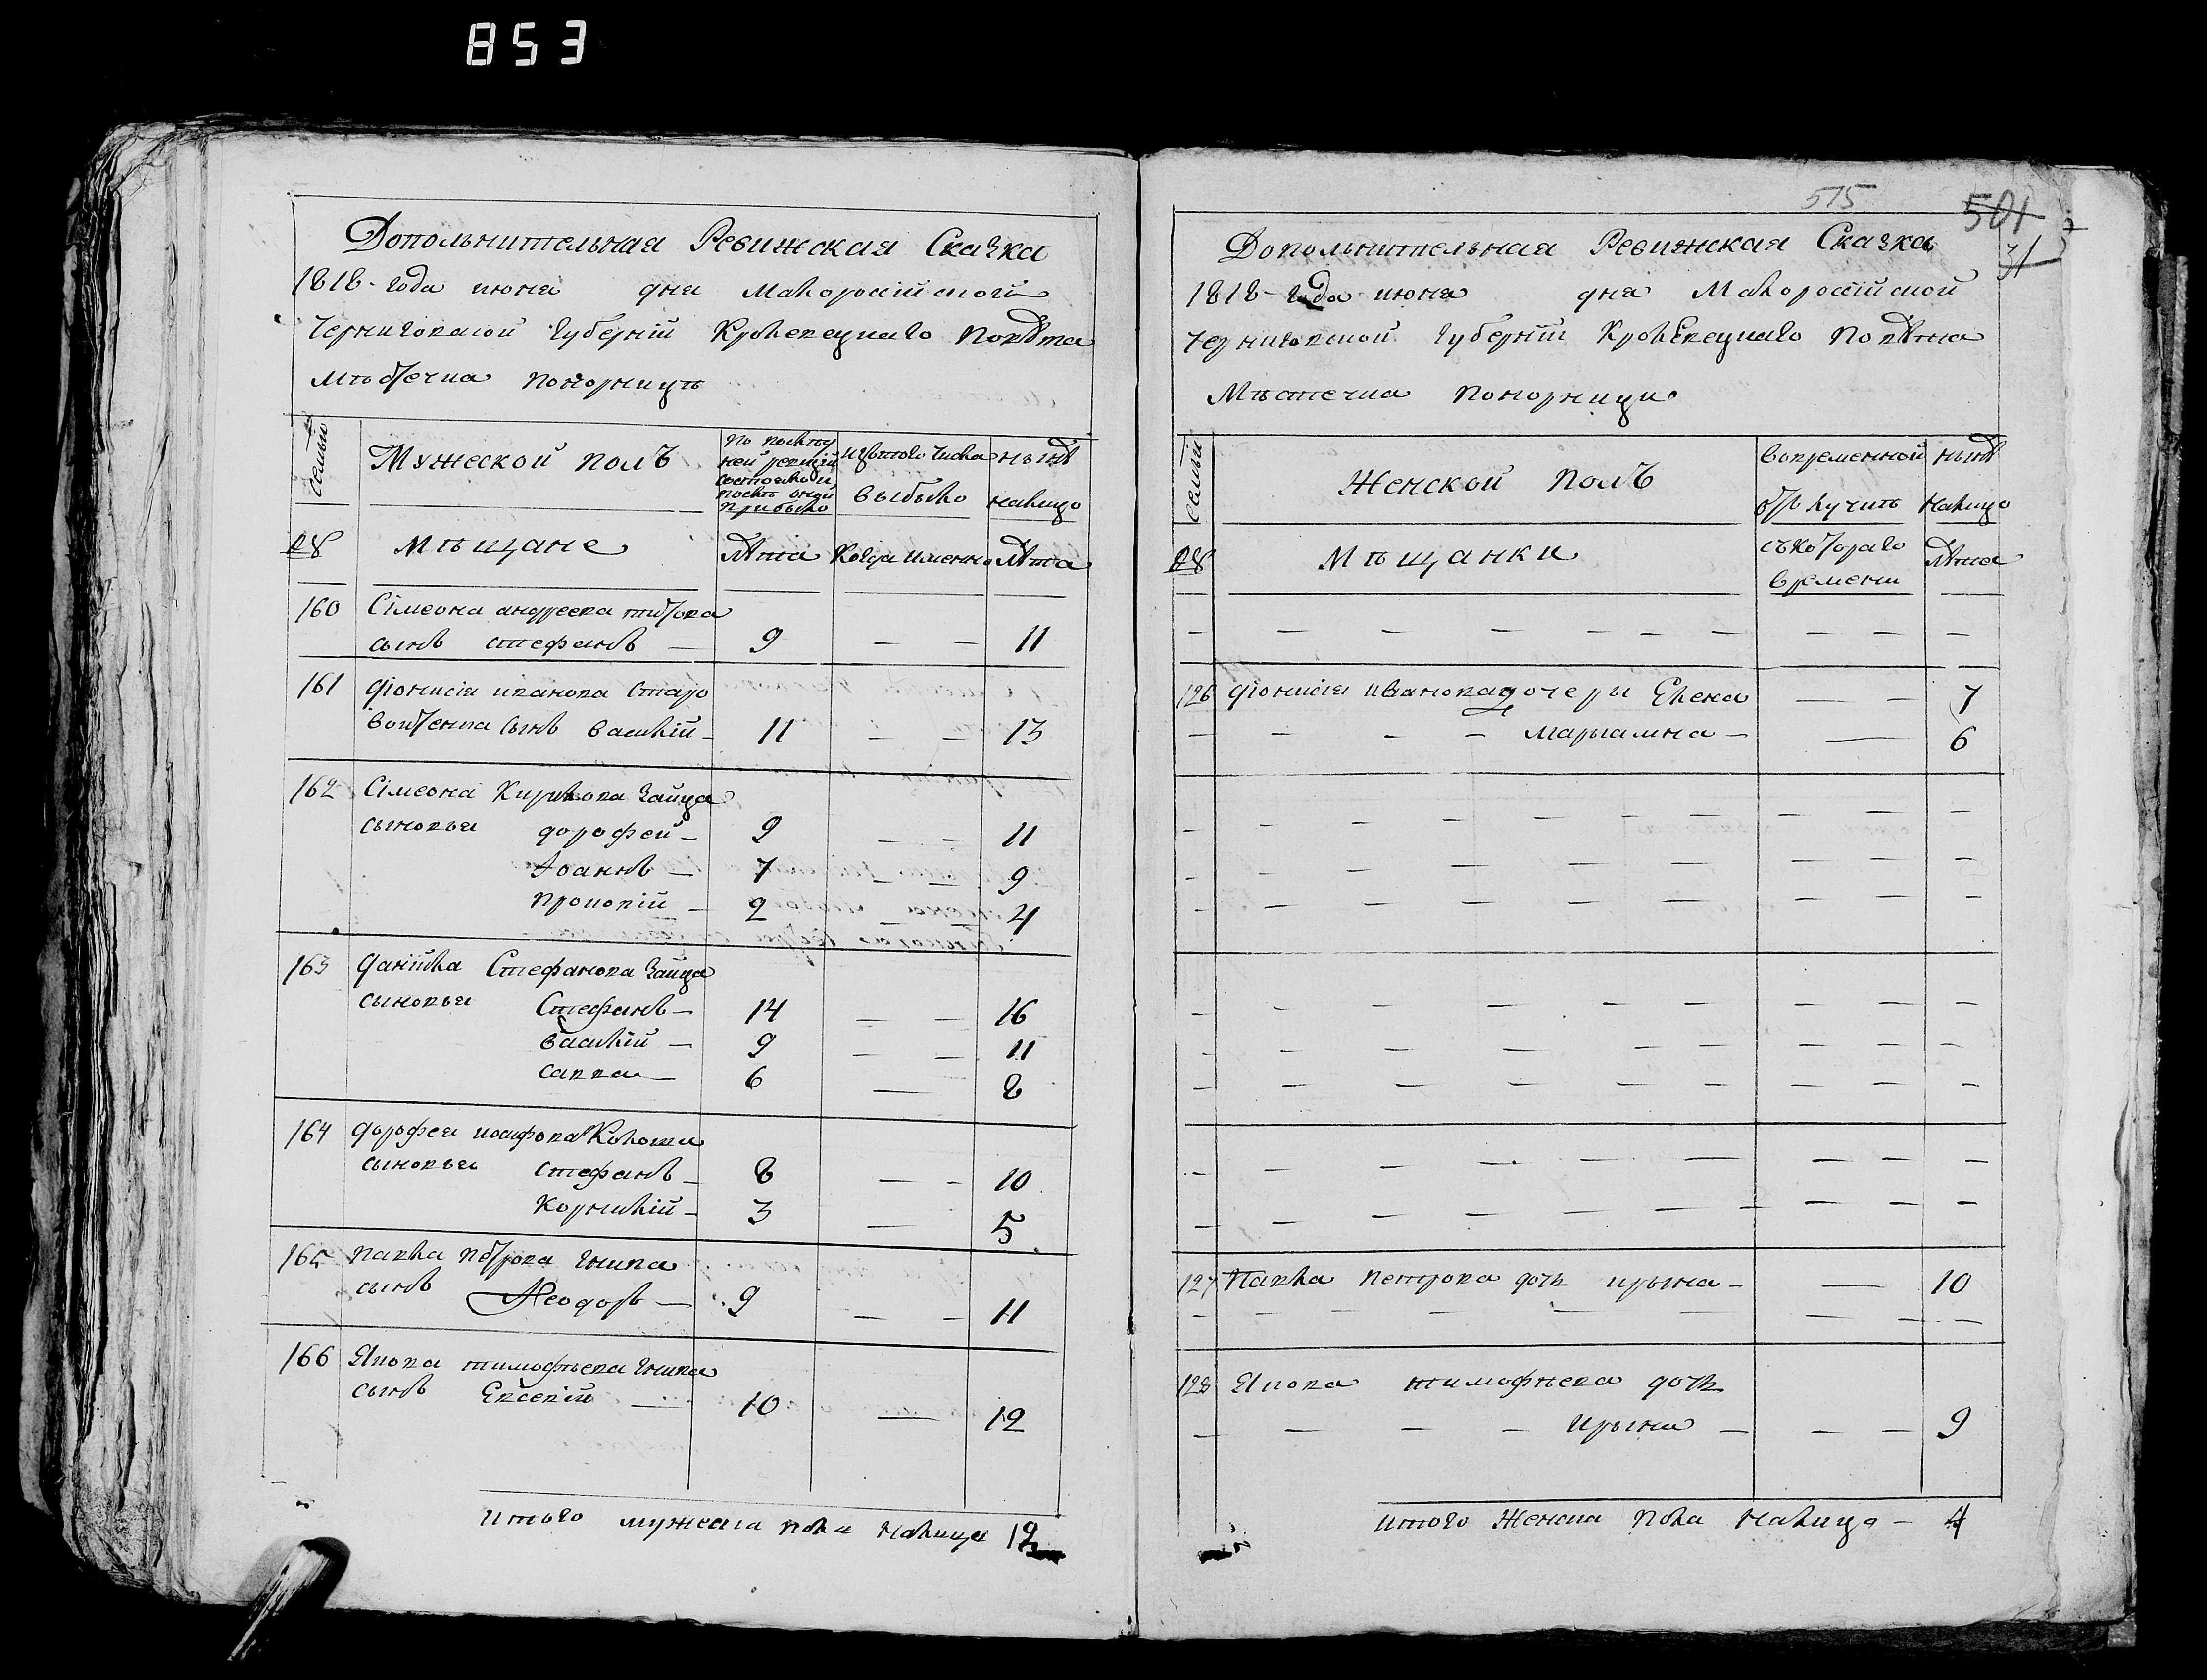 853
Дополнительная Ревижская Сказка
1818-года июня дня Малороссiйской
Черниговской Губернiи Кролевецкаго Повѣта
Мѣстечка Понорницѣ
семьи
Мужеской полъ
По послѣд
ней ревизiи
состояло и
послѣ оной
прибыло
изъ того числа
выбыло
нынѣ
налицо
№
Мѣщане
Лѣта
Когда именно
Лѣта
160 Сiмеона андреева
сынъ стефанъ — 9 — — 11
161 дiонисiя иванова Старо
войтенка сынъ василiй — 11 — — 13
162 Сiмеона Кирилова Зайца
сыновья дорофей — 9 — — 11
Iоаннъ — 7 — — 9
прокопiй — 2 — — 4
163 данiила Стефанова Зайца
сыновья Стефанъ — 14 — — 16
василiй — 9 — — 11
савва — 6 — 8
164 дорофея иосифова Коломи
сыновья стефанъ — 8 — — 10
Корнилiй — 3 — 5
165 павла петрова
сынъ Феодоръ — 9 — — 11
166 Якова тимофѣева
сынъ Евсевiй — 10 — 12
итого мужеска пола налицо 12
515
501
31
Дополнительная Ревижская Сказка
1818-года июня дня Малороссiйской
Черниговской Губернiи Кролевецкаго Повѣта
Мѣстечка Понорници
семьи
Женской полъ
вовременной
отлучкѣ
нынѣ
налицо
№
Мѣщанки
съкотораго
времени
лѣта
— — — — — — — — — —
126 дiонисiя иванова дочери Елена — — 7
— — — — марiамна — — 6
— — — — — — — — — —
— — — — — — — — —
— — — — — — — — — —
— — — — — — — — — —
— — — — — — — — — —
— — — — — — — — — —
— — — — — — — — —
— — — — — — — — — —
127 Павла петрова дочь ирина — — 10
— — — — — — — — —
128 Якова тимофѣева дочь
— — — — Ирина — — — 9
итого женска пола налицо — 4